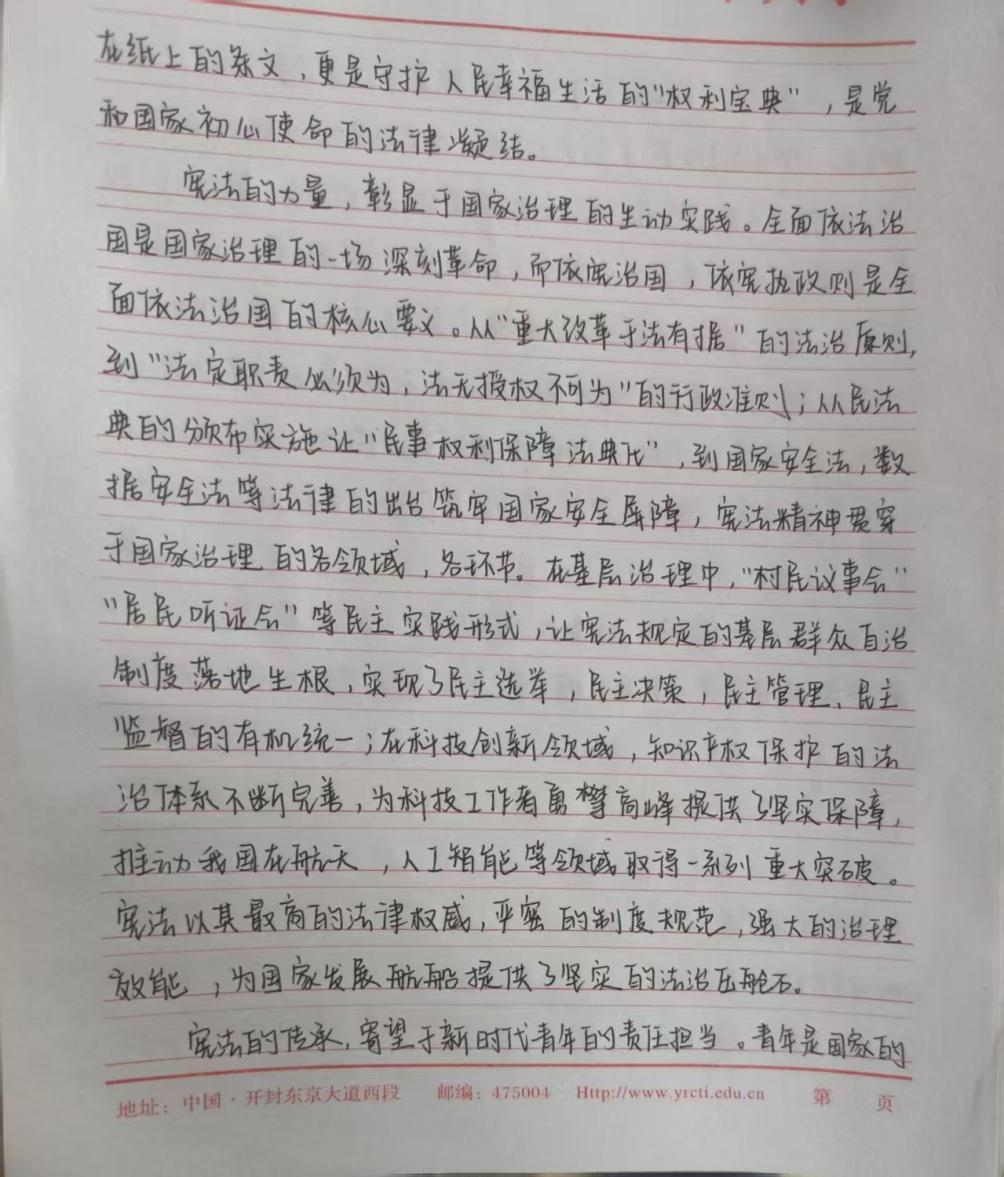 在纸上的条文，更是守护人民幸福生活的“权利宝典”，是党
和国家初心使命的法律凝结。
宪法的力量，彰显于国家治理的生动实践。全面依法治
国是国家治理的一场深刻革命，而依宪治国，依宪执政则是全
面依法治国的核心要义。从“重大改革于法有据”的法治原则，
到“法定职责必须为，法无授权不可为”的行政准则；从民法
典的颁布实施让“民事权利保障法典化”，到国家安全法，数
据安全法等法律的出台筑牢国家安全屏障，宪法精神贯穿
于国家治理的各领域，各环节。在基层治理中，“村民议事会”
“居民听证会”等民主实践形式，让宪法规定的基层群众自治
制度落地生根，实现了民主选举，民主决策，民主管理、民主
监督的有机统一；在科技创新领域，知识产权保护的法
治体系不断完善，为科技工作者勇攀高峰提供了坚实保障，
推动我国在航天，人工智能等领域取得一系列重大突破。
宪法以其最高的法律权威，严密的制度规范，强大的治理
效能，为国家发展航船提供了坚实的法治压舱石。
宪法的传承，寄望于新时代青年的责任担当。青年是国家的
地址：中国·开封东京大道西段 邮编：475004 Http://www.yrcti.edu.cn 第 页